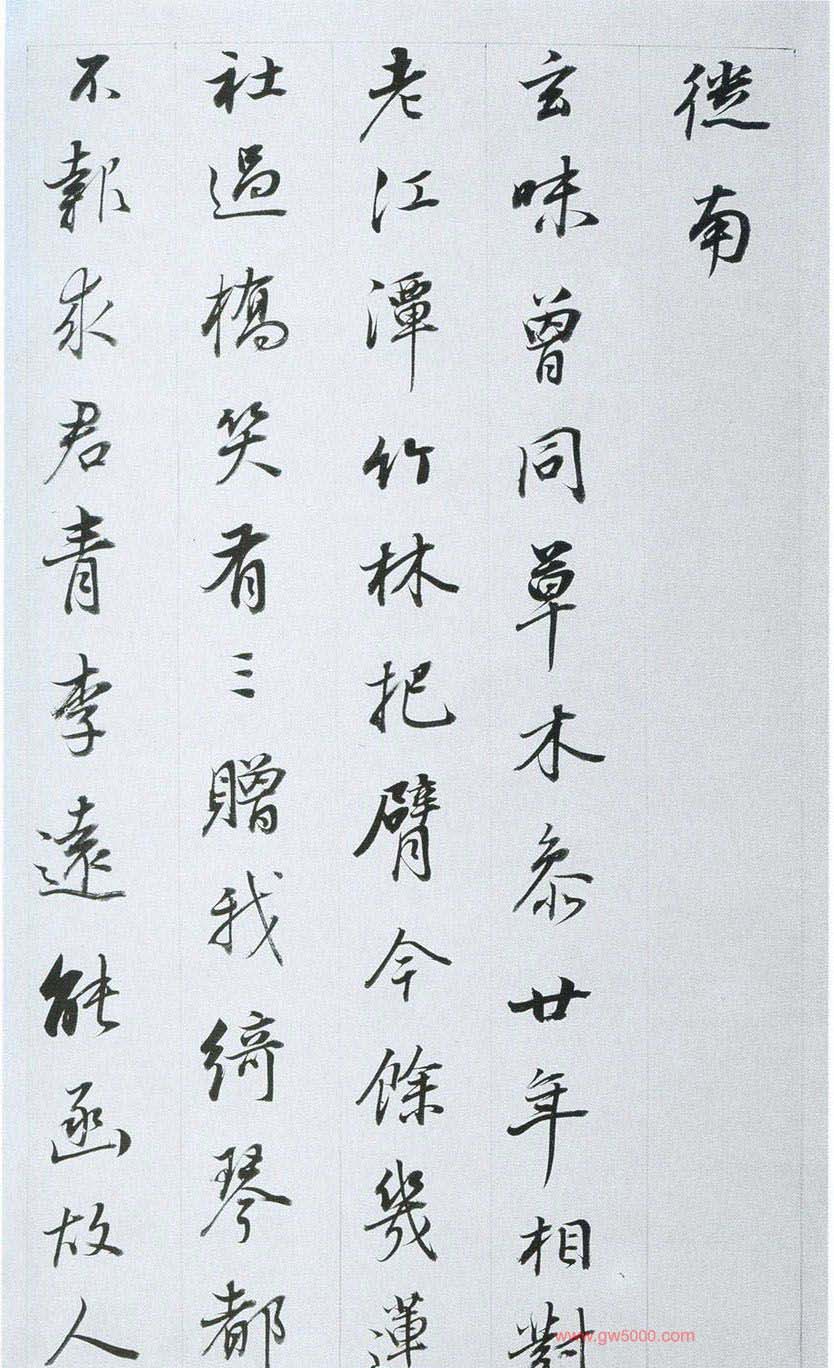 徙南
玄味曾同草木參廿年相對
老江潭竹林把臂今餘幾蓮
社過橋笑有三贈我綺琴都
不報求君青李遠能函故人
www.gw5000.com